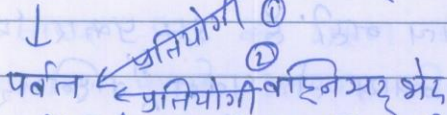 ↓ प्रतियोगी ①
②
पर्वत ← प्रतियोगी वह्निमद् भेद